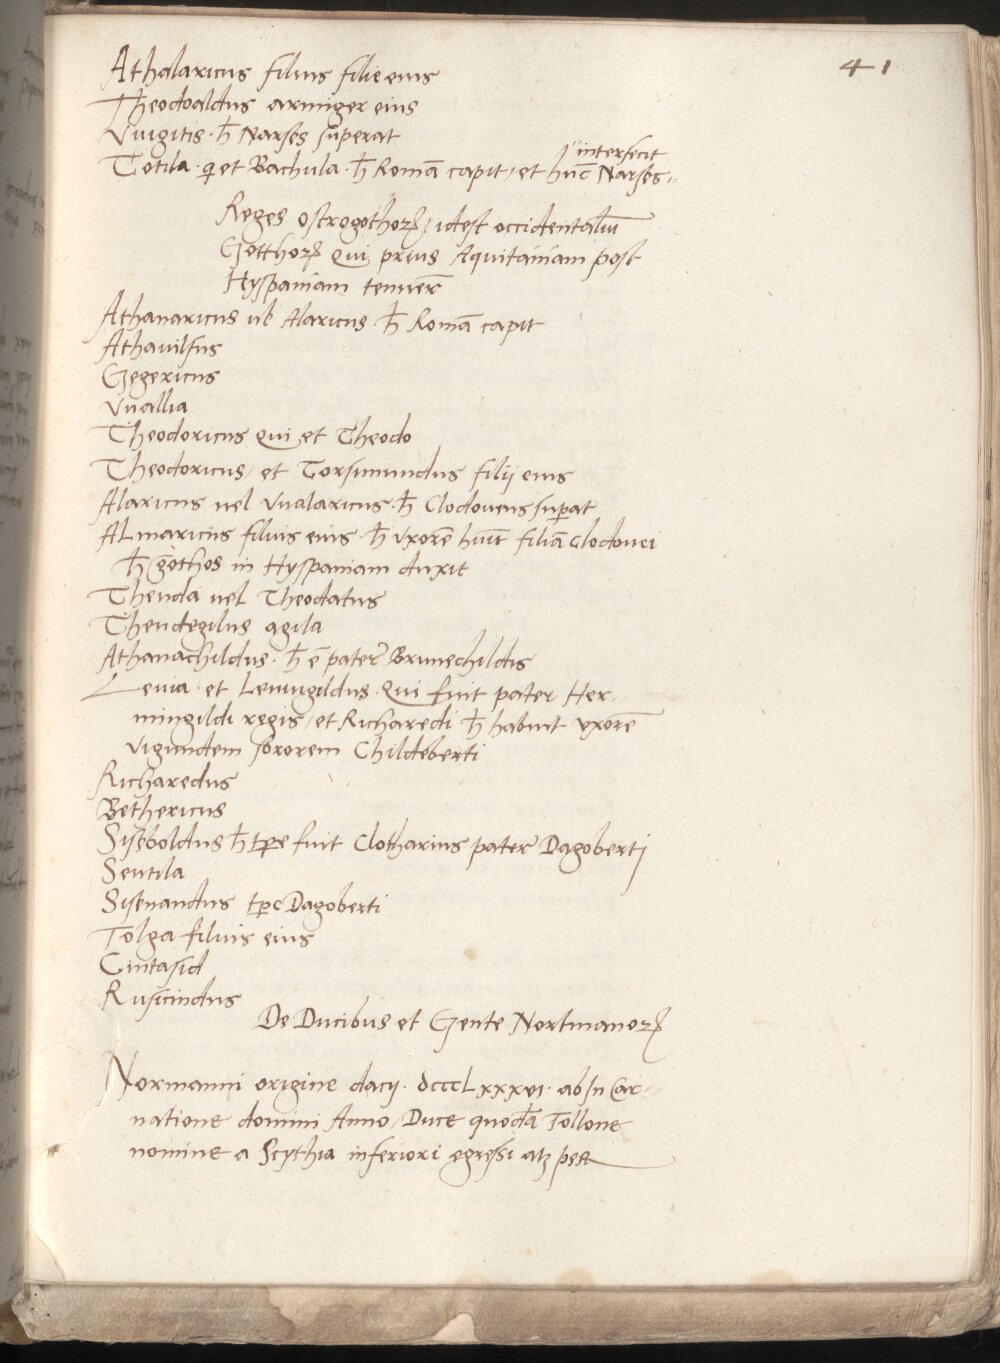 41
Athalaricus filius filie eius
Theodoaldus armiger eius
Vuigitis · h̄ Narses superat
interfecit
Totila · qi et Bachula · h̄ Romā capit, et hūc Narses ·
Reges ostrogothoꝝ, idest occidentaliū
Gotthoꝝ qui prius Aquitaniam post
Hyspaniam tenuer̄
Athanaricus ul̄ Alaricus · h̄ Romā capit
Athauilfus
Gegericus
Vuallia
Theodoricus qui et Theodo
Theodoricus, et Torsimundus filij eius
Alaricus uel Vualaricus · h̄ Clodoueus suꝑat
ALmaricus filius eius · h̄ vxorē hūit filiā Clodouei
h̄ gothos in Hyspaniam duxit
Theuda uel Theodatus
Theudegilus agila
Athanachildus · h̄ ē pater Brunechildis
Leuia · et Leuuigildus · qui fuit pater Her
mingildi regis, et Richaredi h̄ habuit vxorē
vigundem sororem Childeberti
Richaredus
Bethericus
Siseboldus h̄ tꝑe fuit Clotharius pater Dagoberti
Sentila
Sisenandus tꝑe Dagoberti
Tolga filius eius
Cintasid
Rusicindus
De Ducibus et Gente Nortmanoꝝ
Normanni origine dacij · dcccLxxxvi · ab In Car
natione domini Anno, Duce quodā Tollone
nomine a Scythia inferiori egressi atqꝫ per